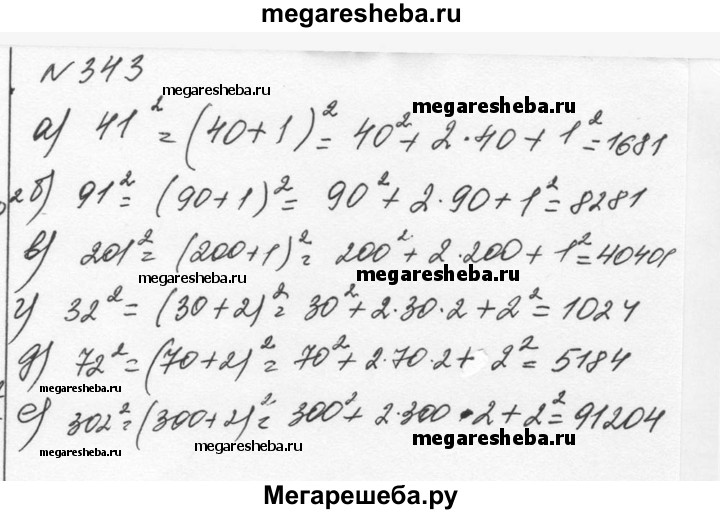 megaresheba.ru
№ 343
megaresheba.ru
megaresheba.ru
а) 41² = (40+1)² = 40² + 2·40 + 1² = 1681
б) 91² = (90+1)² = 90² + 2·90 + 1² = 8281
в) 201² = (200+1)² = 200² + 2·200 + 1² = 40401
megaresheba.ru
megaresheba.ru
г) 32² = (30+2)² = 30² + 2·30·2 + 2² = 1024
д) 72² = (70+2)² = 70² + 2·70·2 + 2² = 5184
megaresheba.ru
е) 302² = (300+2)² = 300² + 2·300·2 + 2² = 91204
megaresheba.ru
megaresheba.ru
megaresheba.ru
Мегарешеба.ру